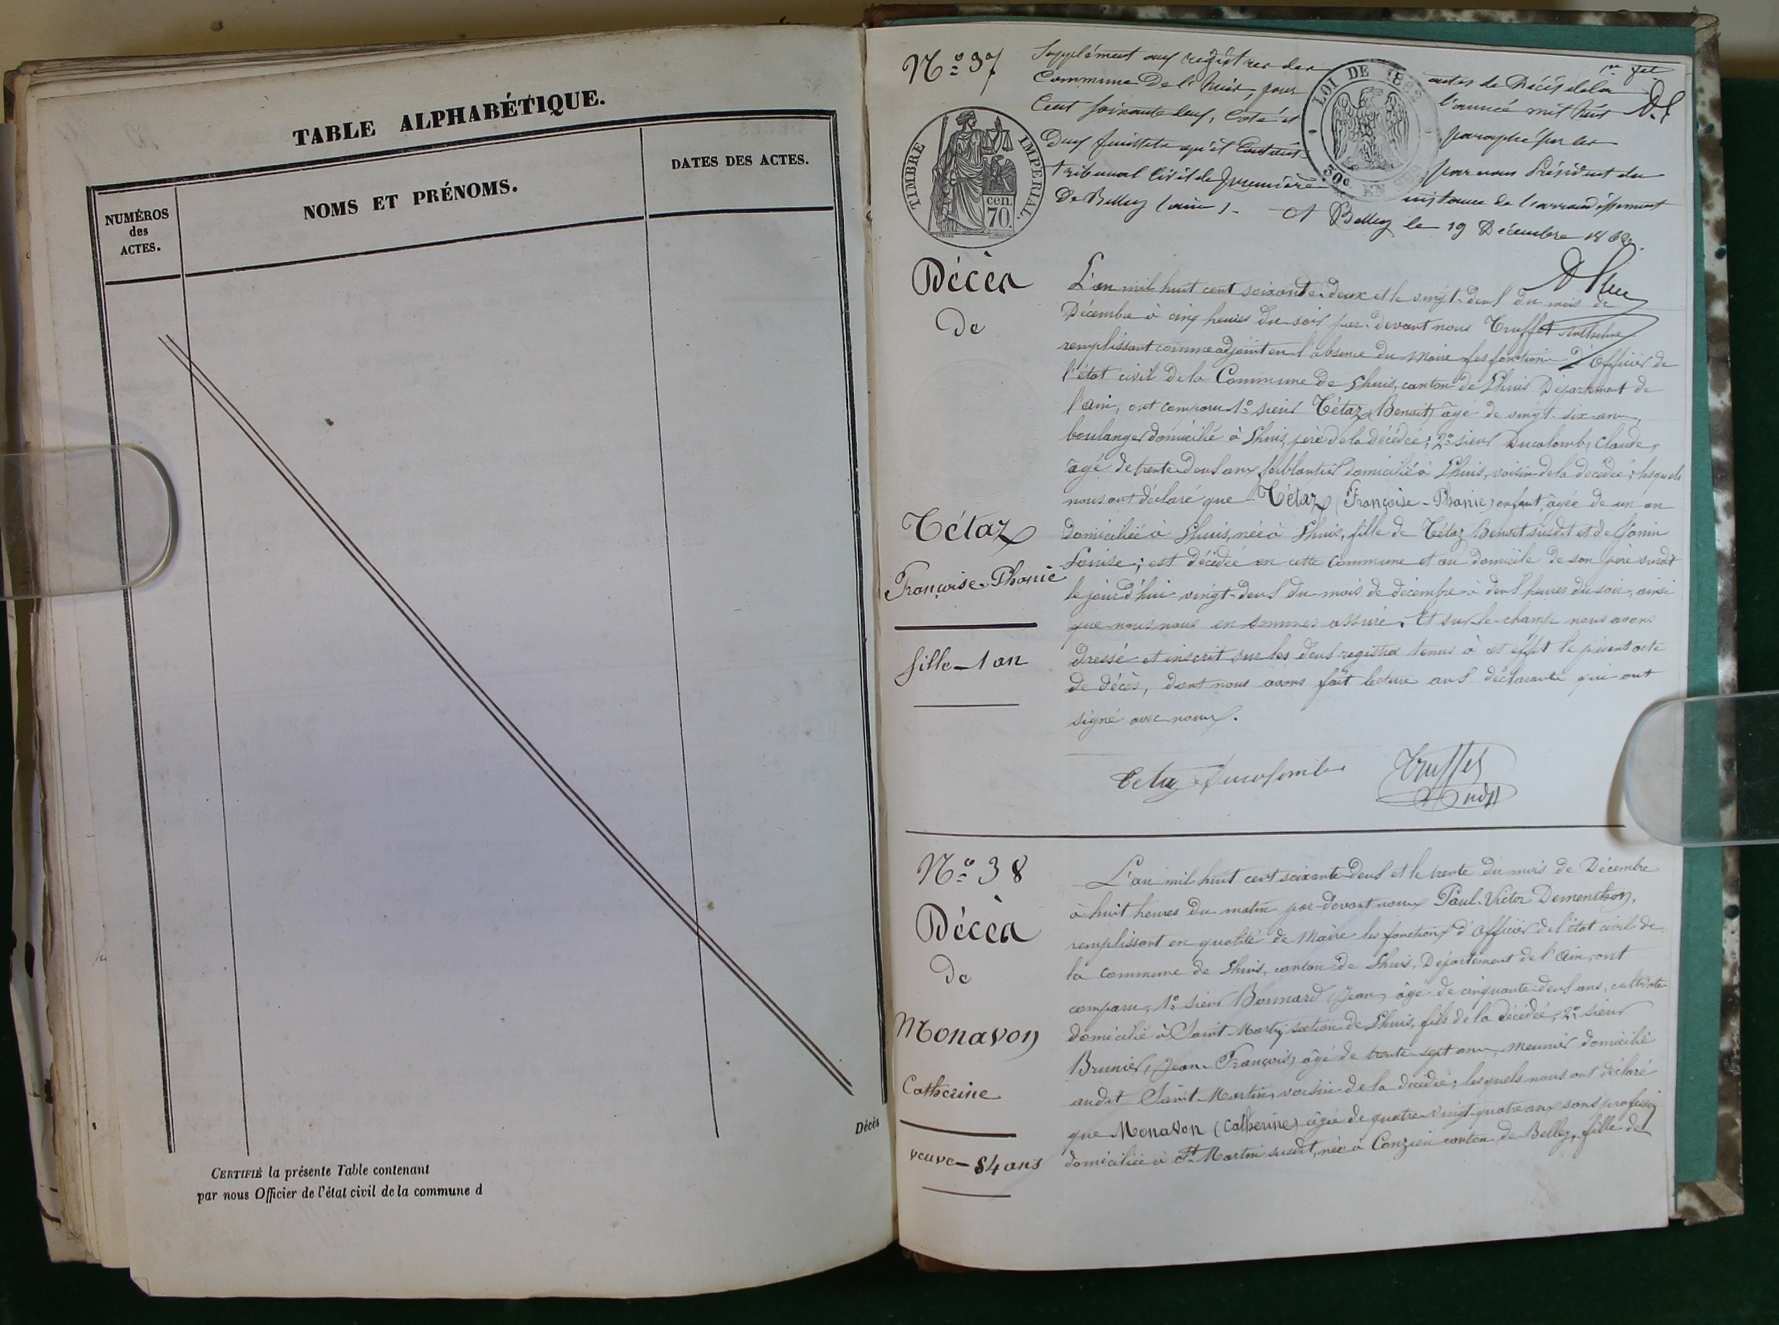 TABLE ALPHABÉTIQUE.
NUMÉROS
des
ACTES.
NOMS ET PRÉNOMS.
DATES DES ACTES.
Décès
CERTIFIÉ la présente Table contenant
par nous Officier de l'état civil de la commune d
N.º 37
Supplément aux registres des actes de Décès de la
Commune De Lhuis pour l'année mil huit
Cent soixante deux, Coté et paraphé par
Deux feuillets par nous Président du
tribunal Civil de première instance de l'arrondissement
De Belley (ain). A Belley le 19 Décembre 1862.
TIMBRE IMPÉRIAL.
cen.
70.
LOI DE 1862
50c EN SUS
1er fet
Décès
de
Tétaz
Françoise-Phanie
fille - 1 an
L'an mil huit cent soixante-deux et le vingt-deux du mois de
Décembre à cinq heures du soir par-devant nous Truffet Anthelme
remplissant comme adjoint en l'absence du Maire les fonctions d'Officier de
l'état civil de la Commune de Lhuis, canton de Lhuis Département de
l'Ain, ont comparu 1º sieur Tétaz, Benoit, âgé de vingt-six ans,
boulanger domicilié à Lhuis, père de la décédée; 2º sieur Ducolomb, Claude,
âgé de trente-deux ans ferblantier domicilié à Lhuis, voisin de la décédée; lesquels
nous ont déclaré que Tétaz (Françoise-Phanie) enfant, âgée de un an
domiciliée à Lhuis, née à Lhuis, fille de Tétaz Benoit susdit et de Gonin
Louise; est décédée en cette Commune et au domicile de son père susdit
le jourd'hui vingt-deux du mois de décembre à deux heures du soir, ainsi
que nous nous en sommes assuré. Et sur-le-champ nous avons
dressé et inscrit sur les deux registres tenus à cet effet le présent acte
de décès, dont nous avons fait lecture aux déclarants qui ont
signé avec nous.
Tetaz Ducolomb Truffet
Adjt
N.º 38
Décès
de
Monavon
Catherine
veuve - 84 ans
L'an mil huit cent soixante deux et le trente du mois de Décembre
à huit heures du matin par-devant nous Paul-Victor Dementhon,
remplissant en qualité de Maire les fonctions d'Officier de l'état civil de
la commune de Lhuis, canton de Lhuis, Département de l'Ain, ont
comparu, 1º sieur Bonnard, Jean, âgé de cinquante-deux ans, cultivateur
domicilié à Saint-Martin section de Lhuis, fils de la décédée, 2º sieur
Brunier, Jean-François, âgé de trente sept ans, meunier domicilié
audit Saint-Martin, voisin de la décédée; lesquels nous ont déclaré
que Monavon (Catherine) âgée de quatre-vingt-quatre ans sans profession
domiciliée à St Martin susdit, née à Conzieu canton de Belley, fille de